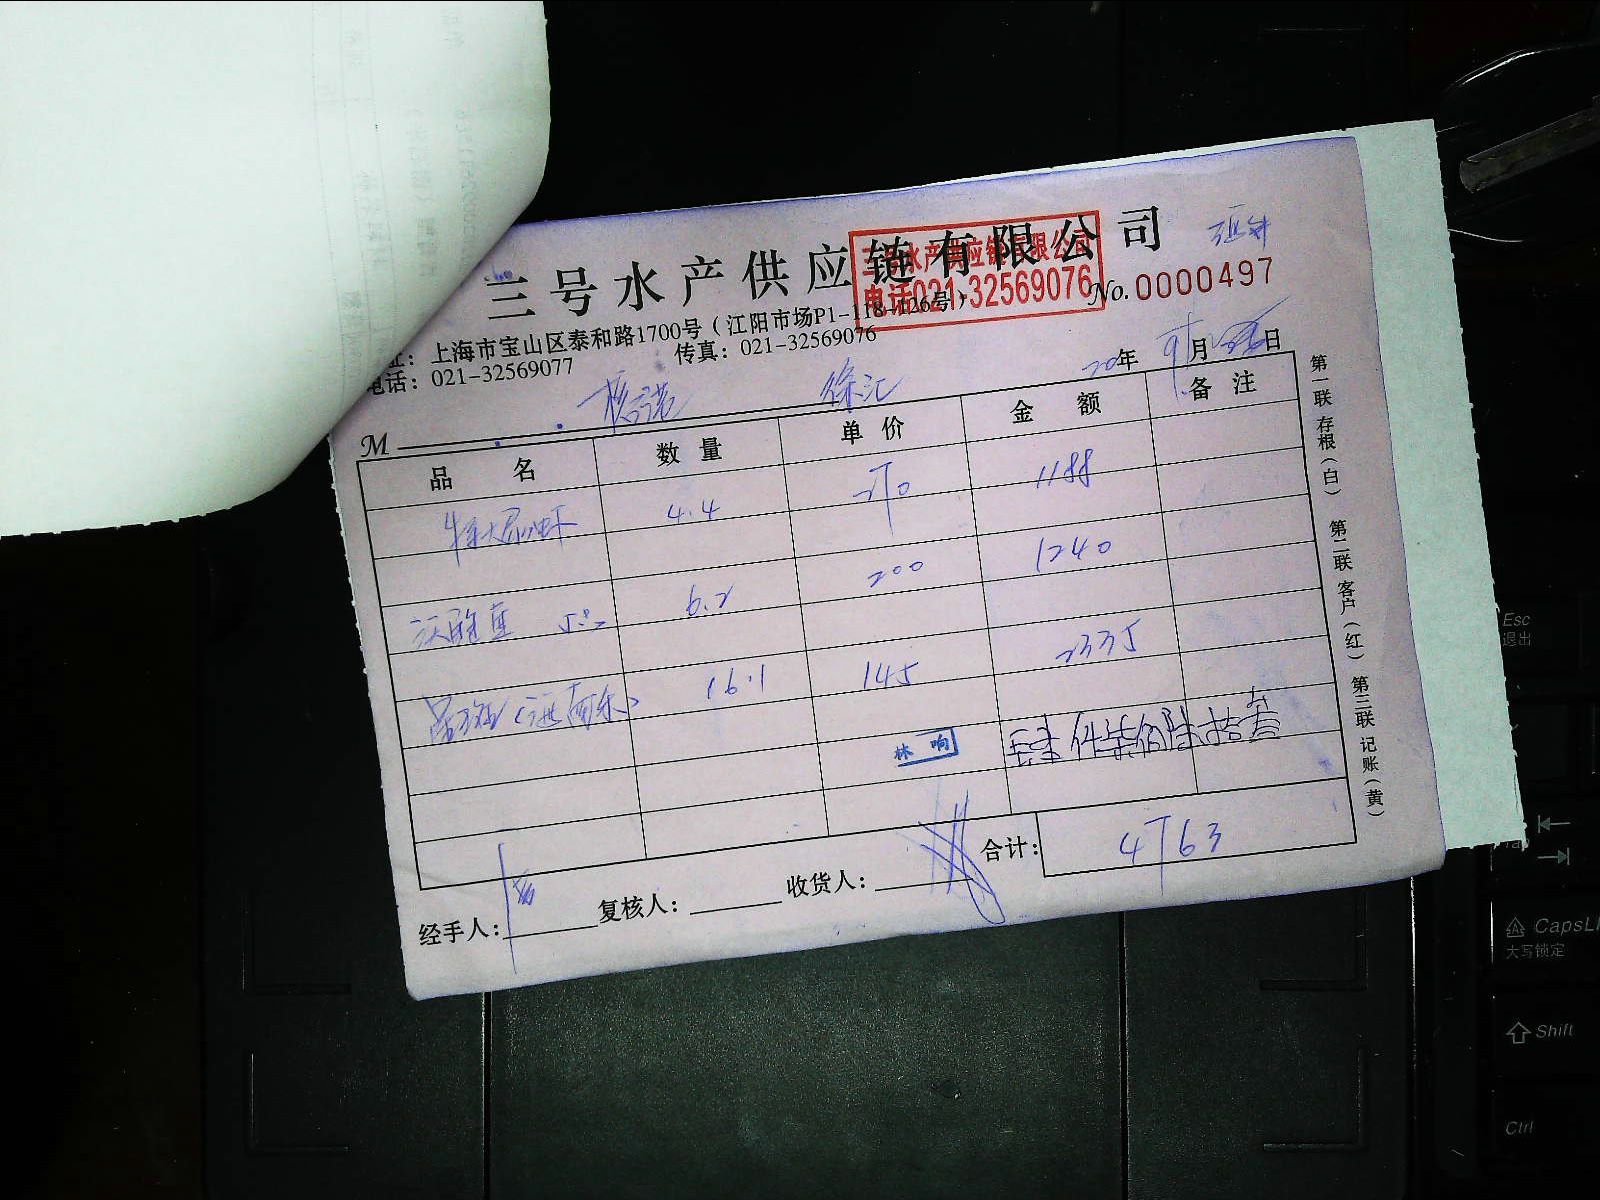 三号水产供应链有限公司
三号水产供应链有限公司
电话021-32569076
No.0000497
址：上海市宝山区泰和路1700号（江阳市场P1-118-126号）
电话：021-32569077 传真：021-32569076
20年 9月 日
M 徐汇
品名 数量 单价 金额 备注
特大 4.4 270 1188
6.2 200 1240
16.1 145 2335
林响
肆仟柒佰陆拾叁
合计： 4763
经手人： 复核人： 收货人：
第一联 存根（白） 第二联 客户（红） 第三联 记账（黄）
Esc
退出
Tab
CapsL
大写锁定
Shift
Ctrl